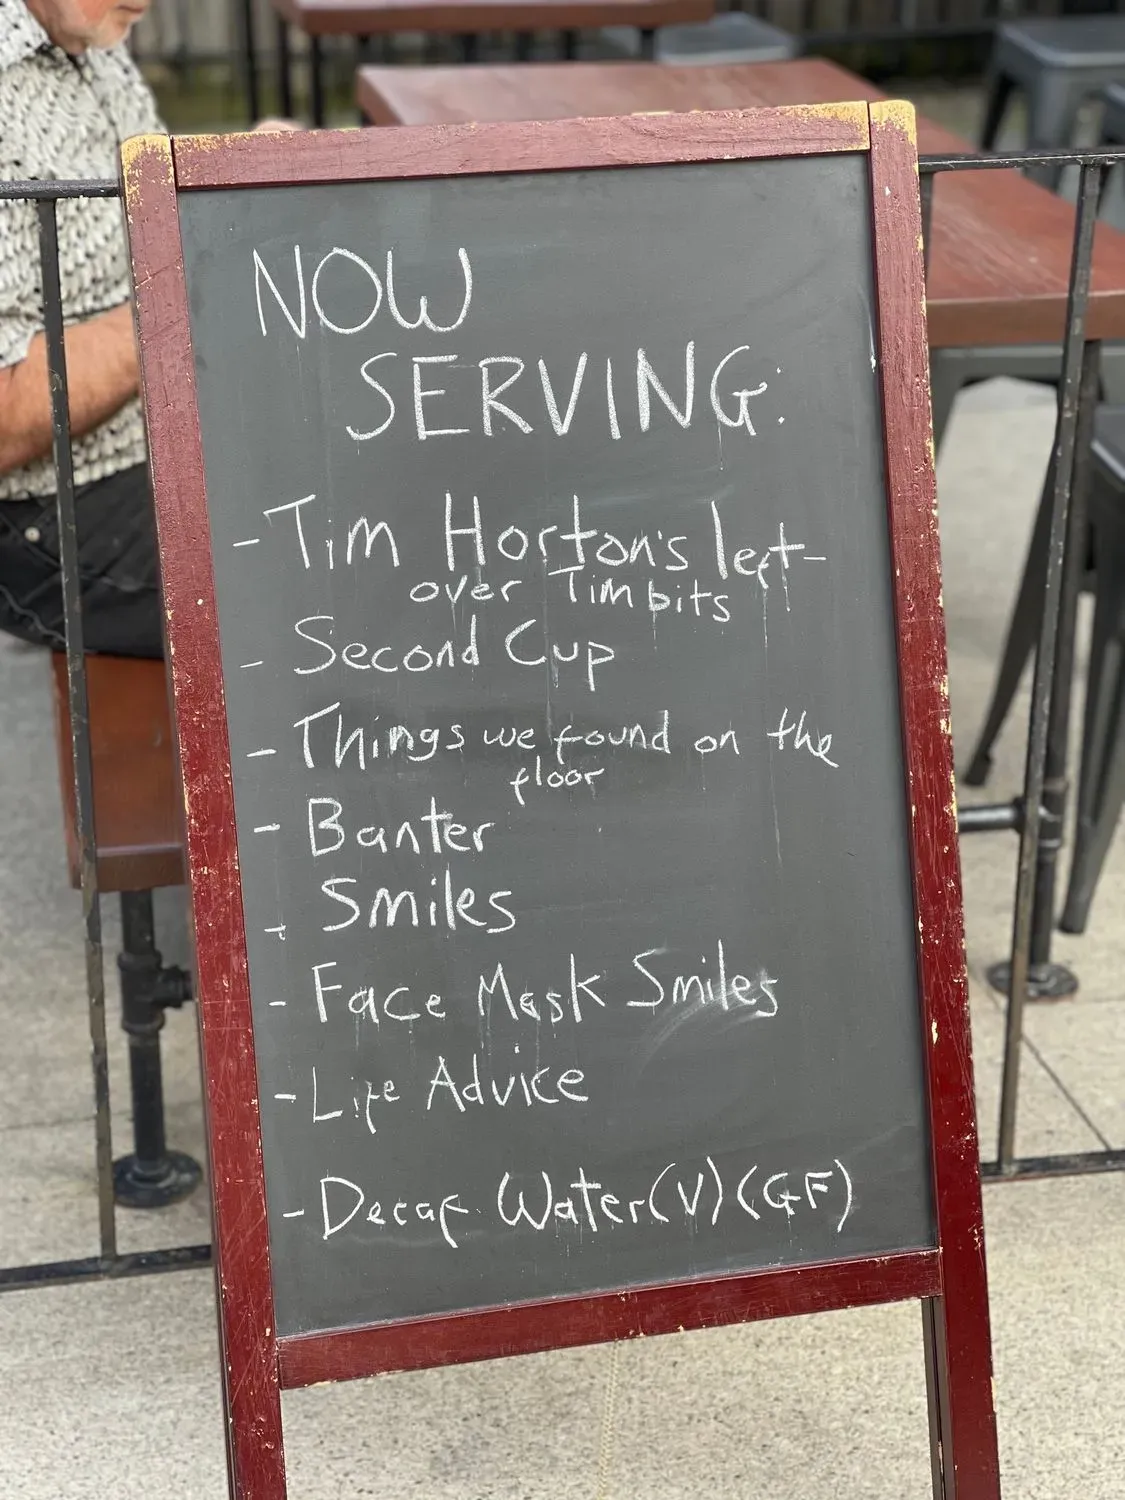 NOW
SERVING:
- Tim Horton's left-
over Timbits
- Second Cup
- Things we found on the
floor
- Banter
- Smiles
- Face Mask Smiles
- Life Advice
- Decaf Water (V) (GF)